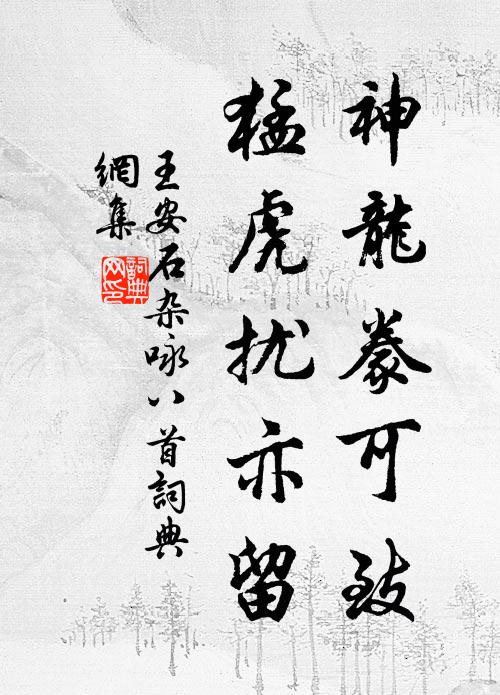 神龍豢可致
猛虎扰亦留
王安石杂咏八首詞典
網集
詞典
网印